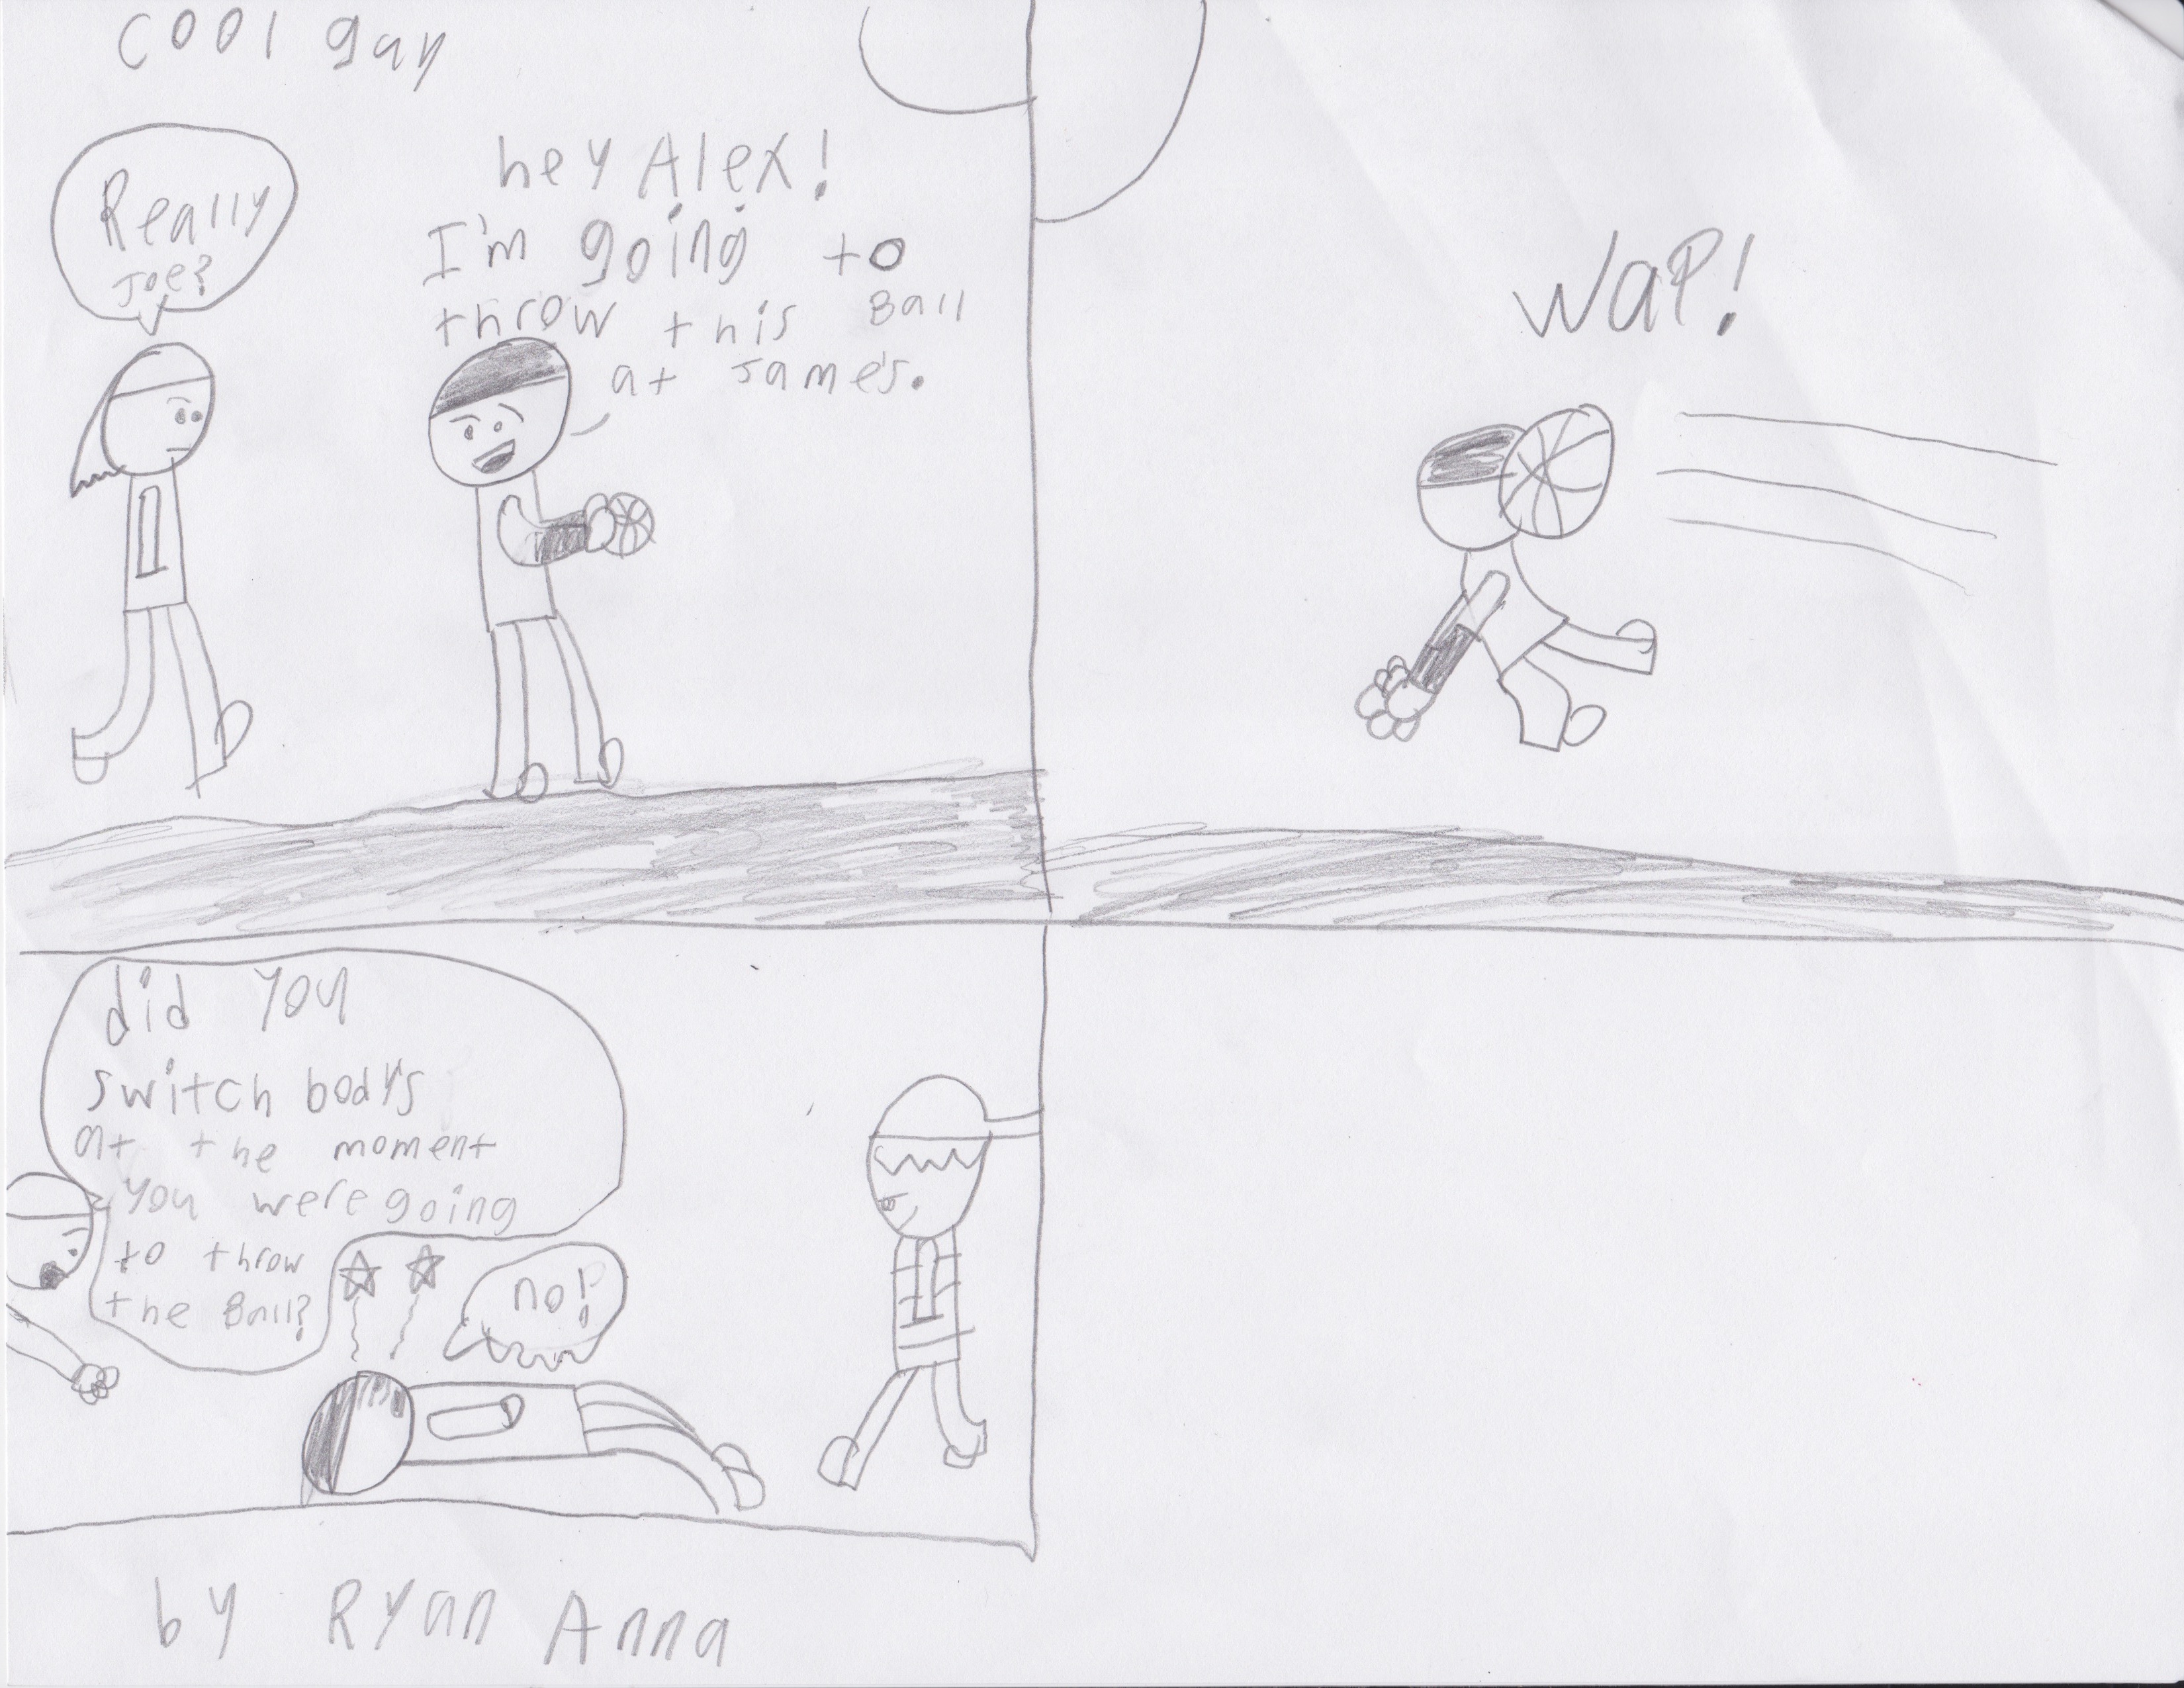 cool guy
Really
Joe?
hey Alex!
I'm going to
throw this Ball
at James.
WaP!
did you
switch body's
at the moment
you were going
to throw
the Ball?
no!
by Ryan Anna